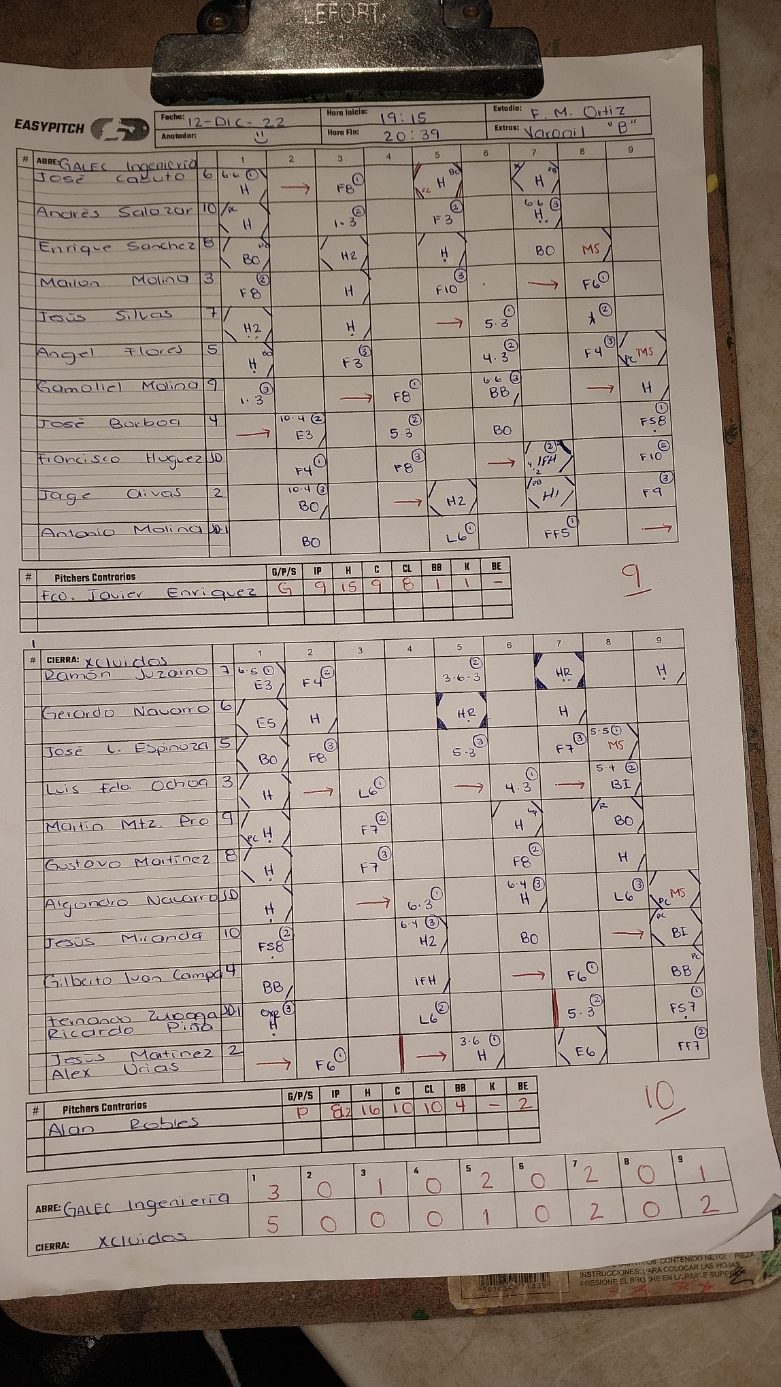 LEFORT
EASYPITCH
Fecha: 12-DIC-22 Hora Inicio: 19:15 Estadio: F. M. Ortiz
Anotador: Hora Fin: 20:39 Extras: Varonil "B"
# ABRE: GALEC Ingenieria 1 2 3 4 5 6 7 8 9
José Casuto 6 6-6 ① H → F8 ① H BO H
Andrés Salazar 10 H 1-3 ② F3 ② 6-6 ③ H
Enrique Sanchez 8 BO H2 H BO MS
Mailon Molina 3 F8 ② H F10 ③ → F6 ①
Jesús Silvas 7 H2 H → 5-3 ① ②
Angel Flores 5 H F3 ③ 4-3 ② F4 ③ PC MS
Gamaliel Molina 9 1-3 ③ → F8 ① 6-6 ③ BB → H
José Borboa 4 → 10-4 ② E3 5-3 ② BO FS8 ①
Francisco Huguez JD F4 ① F8 ③ → IFH ② F10 ②
Jage Oivas 2 10-4 ③ BO → H2 H1 F9 ③
Antonio Molina BO L6 ① FF5 ① →
# Pitchers Contrarios G/P/S IP H C CL BB K BE
Fco. Javier Enriquez G 9 15 9 8 1 1 -
9
# CIERRA: xcluidos 1 2 3 4 5 6 7 8 9
Ramón Juzaino 7 6-5 ① E3 F4 ② 3-6-3 ② HR H
Gerardo Navarro 6 E5 H HR H
José L. Espinoza 5 BO F8 ③ 5-3 ③ F7 ③ 5-5 ① MS
Luis Fdo Ochoa 3 H → L6 ① → 4-3 ① → 5-4 ② BI
Martin Mtz. Pro 9 PC H F7 ② H BO
Gustavo Martinez 8 H F7 ③ F8 ② H
Alejandro Navarro JD H → 6-3 ① 6-4 ③ H L6 ③ PC MS
Jesus Miranda 10 FS8 ② 6-4 ③ H2 BO → PC BI
Gilberto Ivan Campa 4 BB IFH → F6 ① PC BB
Fernando Zuñoga L6 ② 5-3 ② FS7 ①
Ricardo Piña H ③
Jesus Martinez 2 → F6 ① → 3-6 ① H E6 FF7 ②
Alex Urias
# Pitchers Contrarios G/P/S IP H C CL BB K BE
Alan Robles P 8.2 16 10 10 4 - 2
10
1 2 3 4 5 6 7 8 9
ABRE: GALEC Ingenieria 3 0 1 0 2 0 2 0 1
CIERRA: xcluidos 5 0 0 0 1 0 2 0 2
CONTENIDO NETO: 1 PIEZA
INSTRUCCIONES: PARA COLOCAR LAS HOJAS,
PRESIONE EL BROCHE EN LA PARTE SUPERIOR